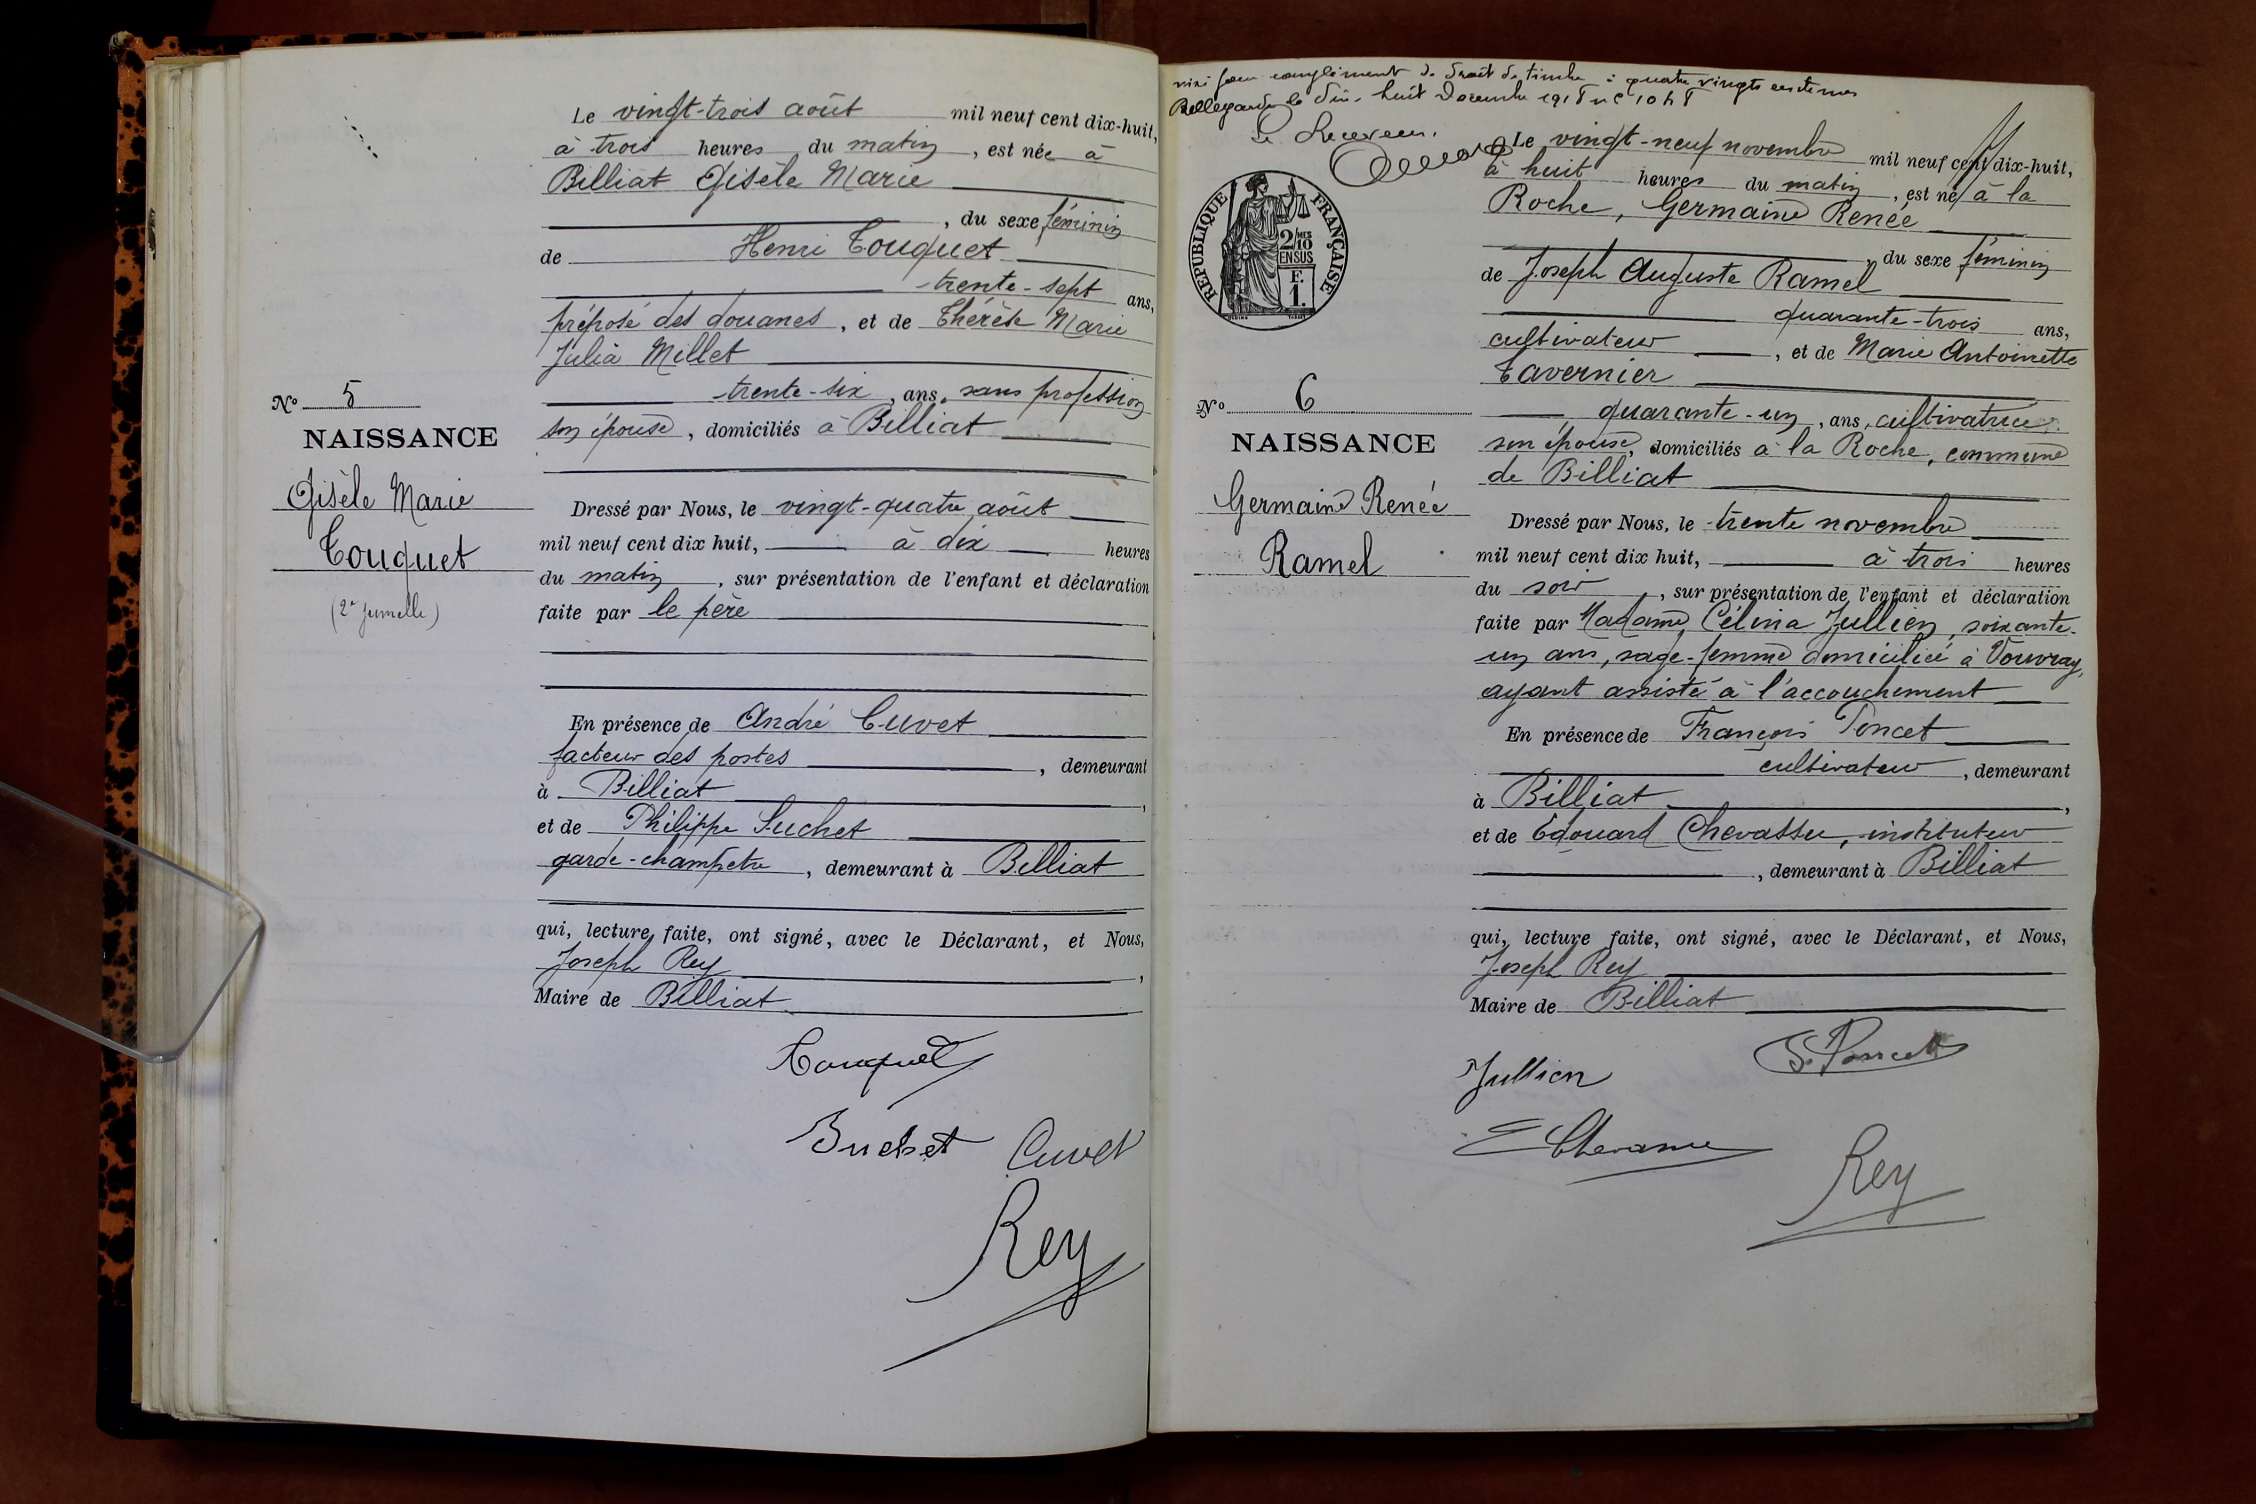 Le vingt-trois août mil neuf cent dix-huit,
à trois heures du matin, est née à
Billiat Gisèle Marie
, du sexe féminin
de Henri Touquet
trente-sept ans,
préposé des douanes, et de Thérèse Marie
Julia Millet
trente-six, ans, sans profession
son épouse, domiciliés à Billiat
N° 5
NAISSANCE
Gisèle Marie
Touquet
(2e jumelle)
Dressé par Nous, le vingt-quatre août
mil neuf cent dix huit, à dix heures
du matin, sur présentation de l'enfant et déclaration
faite par le père
En présence de André Cuvet
facteur des postes, demeurant
à Billiat,
et de Philippe Suchet
garde-champetre, demeurant à Billiat
qui, lecture faite, ont signé, avec le Déclarant, et Nous,
Joseph Rey,
Maire de Billiat
Touquet
Suchet Cuvet
Rey
visé pour complément de droit de timbre : quatre vingts centimes
Bellegarde le dix-huit Décembre 1918 n°
Le Receveur.
RÉPUBLIQUE FRANÇAISE
2/10 MES
EN SUS
F.
1.
Le vingt-neuf novembre mil neuf cent dix-huit,
à huit heures du matin, est né à la
Roche, Germaine Renée
, du sexe féminin
de Joseph Auguste Ramel
quarante-trois ans,
cultivateur, et de Marie Antoinette
Tavernier
quarante-un, ans, cultivatrice
son épouse, domiciliés à la Roche, commune
de Billiat
N° 6
NAISSANCE
Germaine Renée
Ramel
Dressé par Nous, le trente novembre
mil neuf cent dix huit, à trois heures
du soir, sur présentation de l'enfant et déclaration
faite par Madame Célina Jullien, soixante-
un ans, sage-femme domiciliée à Vouvray,
ayant assisté à l'accouchement
En présence de François Poncet
cultivateur, demeurant
à Billiat,
et de Edouard Chevassu, instituteur
, demeurant à Billiat
qui, lecture faite, ont signé, avec le Déclarant, et Nous,
Joseph Rey
Maire de Billiat
Jullien Poncet
E Chevassu
Rey